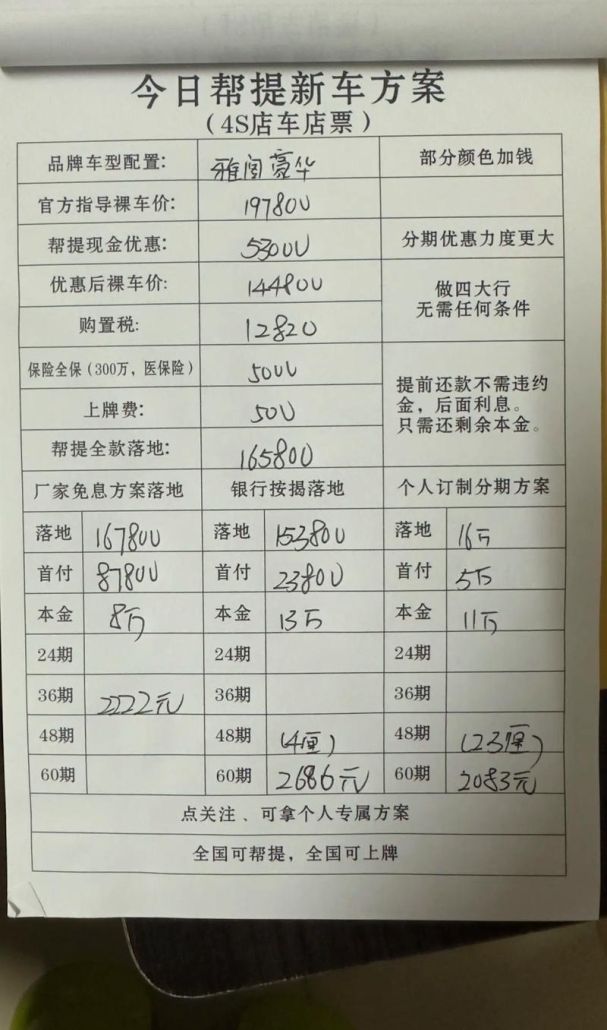 今日帮提新车方案
(4S店车店票)
品牌车型配置: 雅阁豪华 部分颜色加钱
官方指导裸车价: 197800
帮提现金优惠: 53000 分期优惠力度更大
优惠后裸车价: 144800 做四大行
无需任何条件
购置税: 12820
保险全保(300万,医保险) 5000 提前还款不需违约
金,后面利息。
只需还剩余本金。
上牌费: 500
帮提全款落地: 165800
厂家免息方案落地 银行按揭落地 个人订制分期方案
落地 167800 落地 153800 落地 16万
首付 87800 首付 23800 首付 5万
本金 8万 本金 13万 本金 11万
24期 24期 24期
36期 2222元 36期 36期
48期 48期 (4厘) 48期 (2.3厘)
60期 60期 2686元 60期 2083元
点关注、可拿个人专属方案
全国可帮提,全国可上牌